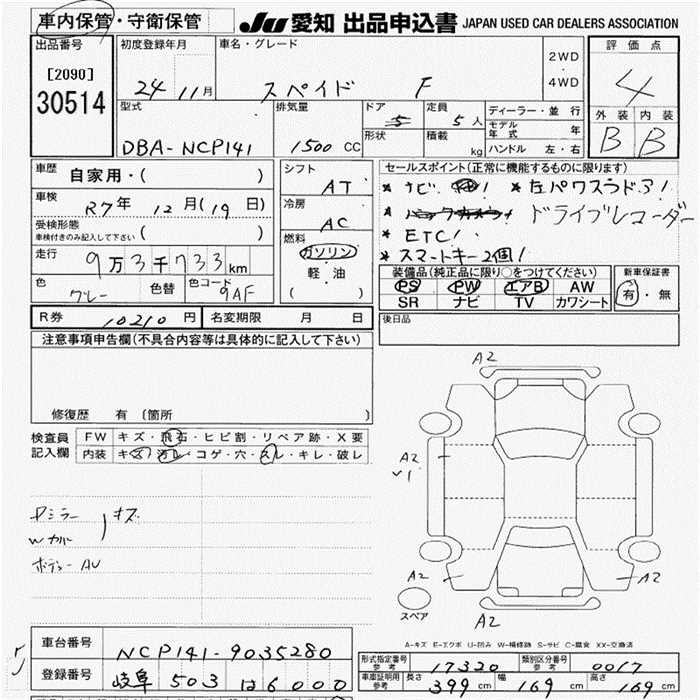 車内保管・守衛保管
JU 愛知 出品申込書 JAPAN USED CAR DEALERS ASSOCIATION
出品番号
[2090]
30514
初度登録年月
24 11月
車名・グレード
スペイド F
2WD
・
4WD
評価点
4
外装 内装
B B
型式
DBA-NCP141
排気量
1500 CC
ドア
5
形状
定員
5人
積載
kg
ディーラー・並行
モデル年式 年
ハンドル 左・右
車歴
自家用・( )
車検
R7年 12月(19日)
受検形態
車検付きのみ記入して下さい ( )
走行
9万3千733km
色
グレー
色替
色コード
9AF
シフト
AT
冷房
AC
燃料
ガソリン
軽・油
( )
セールスポイント(正常に機能するものに限ります)
* ナビ! * 左パワスラドア!
* バックカメラ! ドライブレコーダー
* ETC!
* スマートキー2個!
装備品(純正品に限り○をつけてください)
PS PW エアB AW
SR ナビ TV カワシート
新車保証書
有・無
R券 10210円
名変期限 月 日
後日品
注意事項申告欄(不具合内容等は具体的に記入して下さい)
修復歴 有 〔箇所 〕
検査員記入欄
FW キズ・飛石・ヒビ割・リペア跡・X要
内装 キズ・汚レ・コゲ・穴・スレ・キレ・破レ
ミラー
Wカバー
キズ
ボデー AU
A2
A2
A2
A2
A2
スペア
A-キズ E-エクボ U-凹み W-補修跡 S-サビ C-腐食 XX-交換済
車台番号
NCP141-9035280
登録番号
岐阜 503 は6000
形式指定番号
参考
17320
類別区分番号
参考
0017
車庫証明用
参考
長さ
399cm
幅
169cm
高さ
169cm